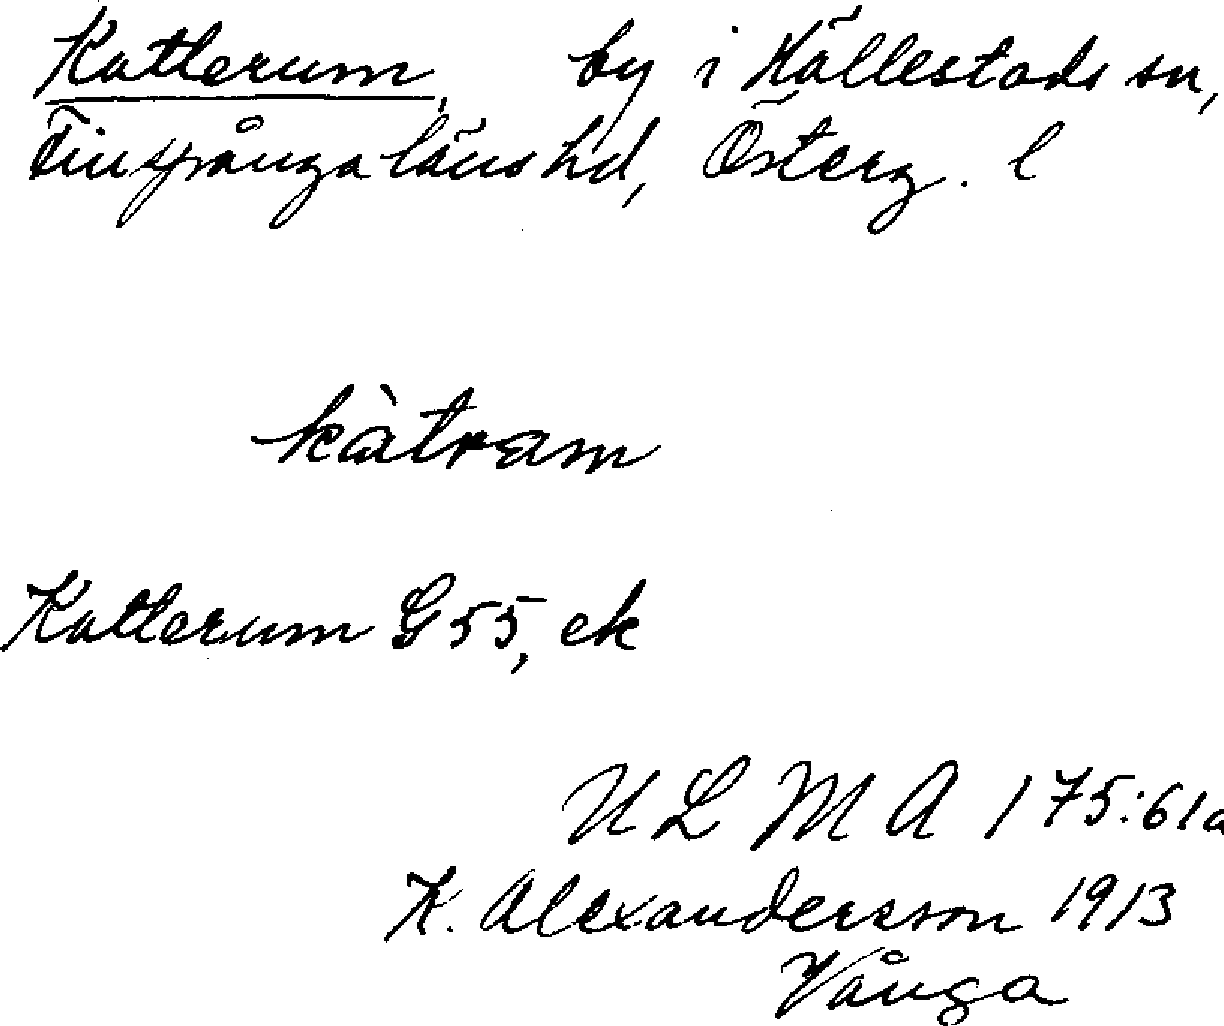 Katterum, by i Hällestads sn,
Finspånga läns hd, Österg. l
kàtram
Katterum G 55, ek
ULMA 175:61a
K. Alexandersson 1913
Vånga